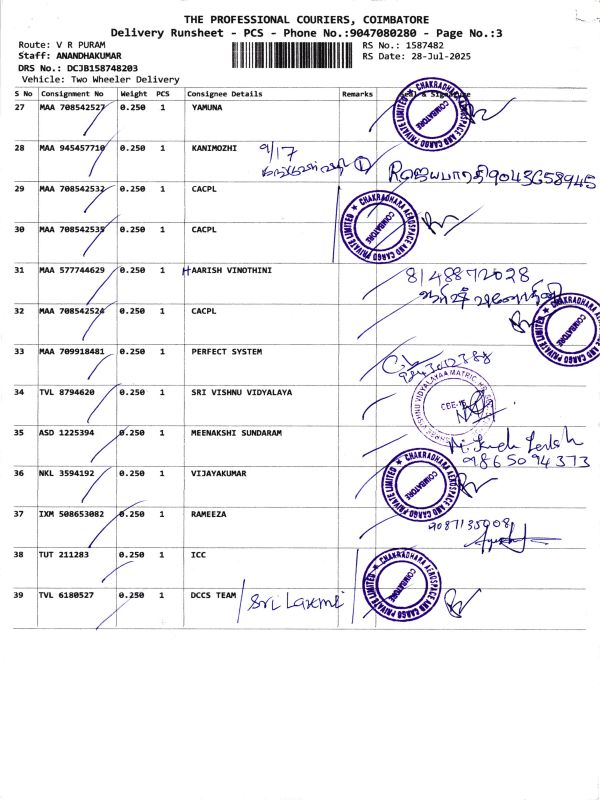 THE PROFESSIONAL COURIERS, COIMBATORE
Delivery Runsheet - PCS - Phone No.:9047080280 - Page No.:3
Route: V R PURAM RS No.: 1587482
Staff: ANANDHAKUMAR RS Date: 28-Jul-2025
DRS No.: DCJB158748203
Vehicle: Two Wheeler Delivery
S No Consignment No Weight PCS Consignee Details Remarks Seal & Signature
27 MAA 708542527 0.250 1 YAMUNA
CHAKRADHARA AEROSPACE AND CARGO PRIVATE LIMITED ★ COIMBATORE
28 MAA 945457710 0.250 1 KANIMOZHI 9/17
9043658945
29 MAA 708542532 0.250 1 CACPL
CHAKRADHARA AEROSPACE AND CARGO PRIVATE LIMITED ★ COIMBATORE
30 MAA 708542535 0.250 1 CACPL
31 MAA 577744629 0.250 1 HAARISH VINOTHINI 8148872028
32 MAA 708542524 0.250 1 CACPL
CHAKRADHARA AEROSPACE AND CARGO PRIVATE LIMITED ★ COIMBATORE
33 MAA 709918481 0.250 1 PERFECT SYSTEM
34 TVL 8794620 0.250 1 SRI VISHNU VIDYALAYA
VISHNU VIDYALAYAA MATRIC HR
35 ASD 1225394 0.250 1 MEENAKSHI SUNDARAM
9865094373
36 NKL 3594192 0.250 1 VIJAYAKUMAR
CHAKRADHARA AEROSPACE AND CARGO PRIVATE LIMITED ★ COIMBATORE
37 IXM 508653082 0.250 1 RAMEEZA 9087135008
38 TUT 211283 0.250 1 ICC
CHAKRADHARA AEROSPACE AND CARGO PRIVATE LIMITED ★ COIMBATORE
39 TVL 6180527 0.250 1 DCCS TEAM Sri Laxmi